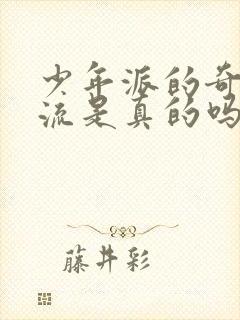 少年派的奇
流是真的吗
藤井彩